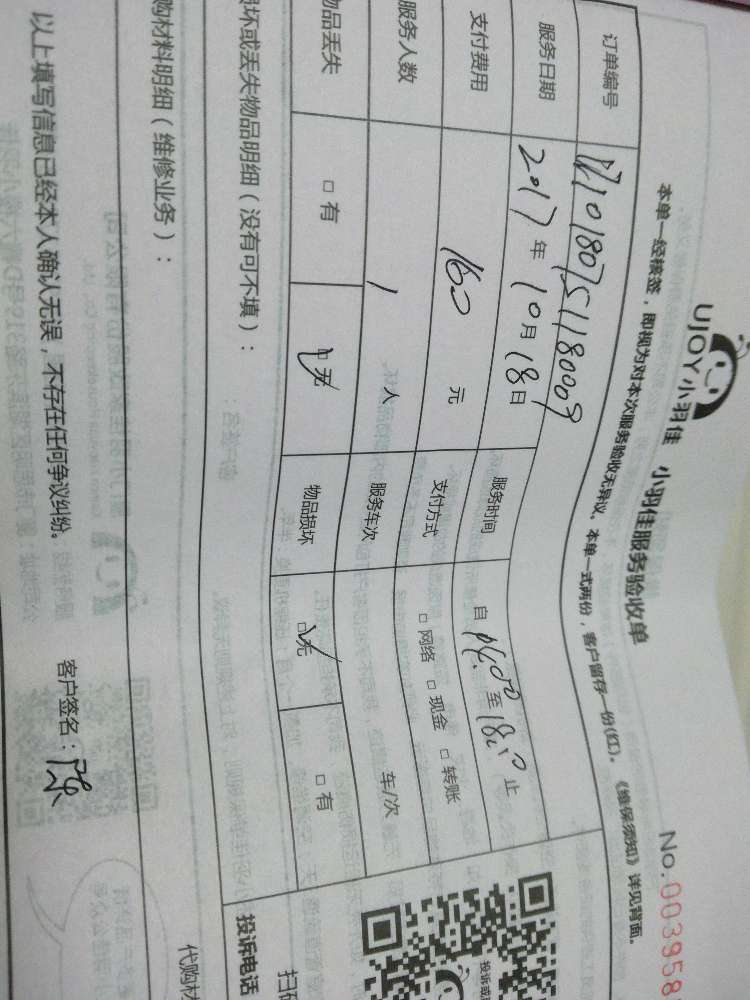 UJOY小羽佳 小羽佳服务验收单
No.003958
本单一经核签，即视为对本次服务验收无异议。本单一式两份，客户留存一份(红)。《维保须知》详见背面。
订单编号
服务日期 2017年10月18日 服务时间 自14:00至18:00止
支付费用 160元 支付方式 □网络 □现金 □转账
服务人数 1人 服务车次 车/次
物品丢失 □有 □无 物品损坏 □无 □有
损坏或丢失物品明细（没有可不填）：
购材料明细（维修业务）：
代购材
投诉电话
扫
以上填写信息已经本人确认无误，不存在任何争议纠纷。 客户签名：